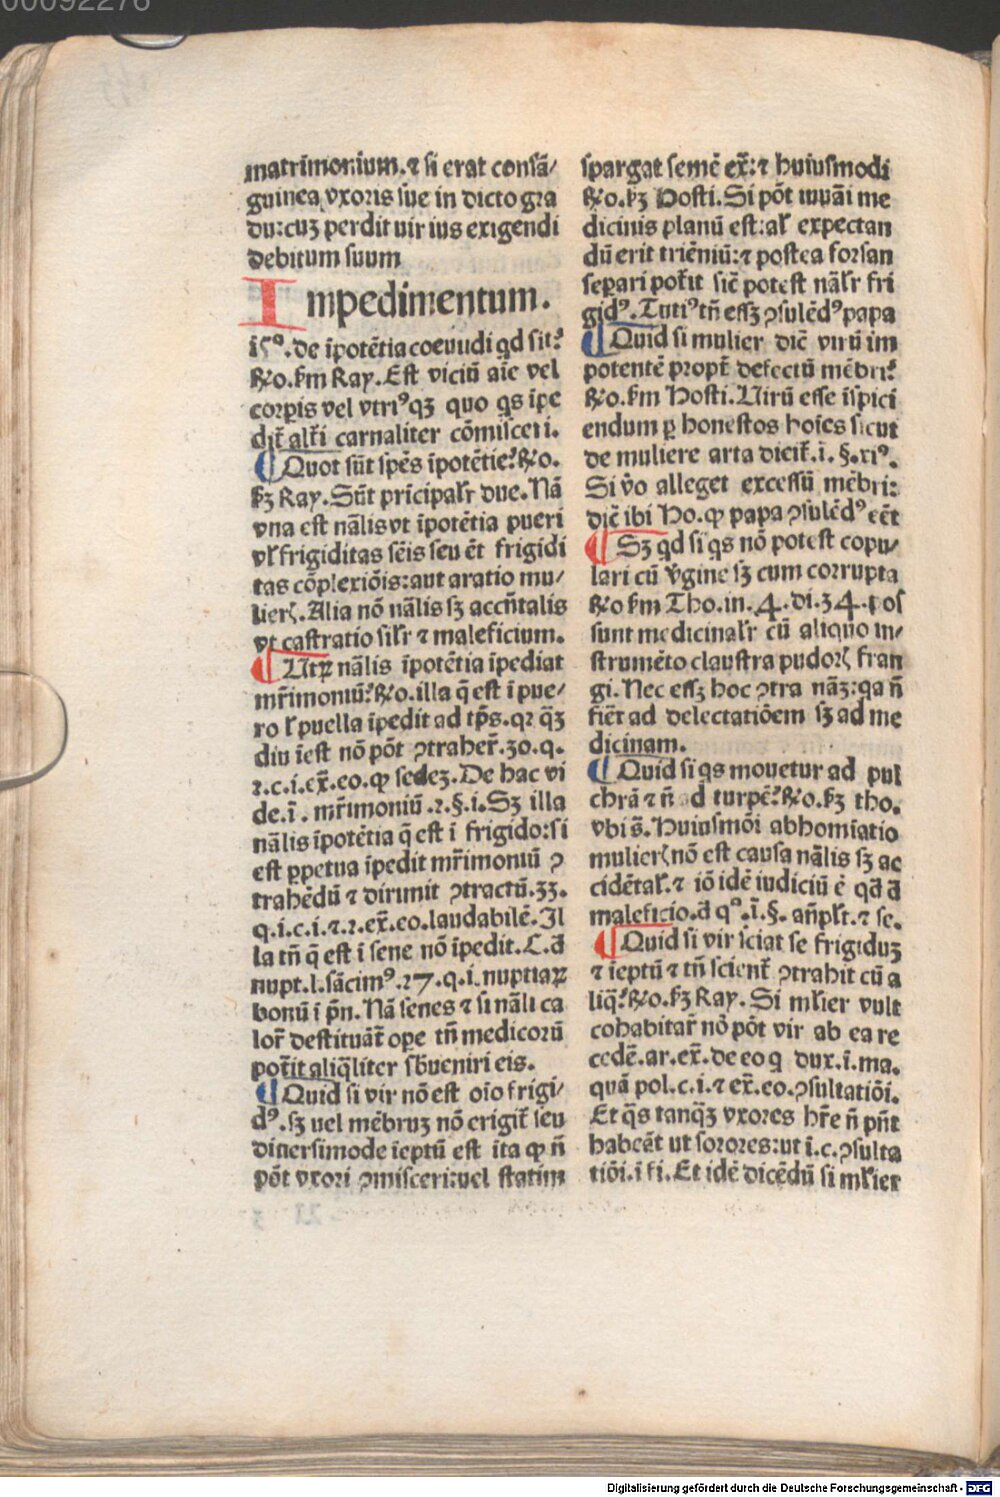 00092276
matrimonium.⁊ si erat consā/
guinea vxoris sue in dicto gra
du:cuꝫ perdit uir ius exigendi
debitum suum
Impedimentum.
i5º.de īpotētia coeundi qd sit?
R̃o.ẜm Ray.Est viciū aīe vel
corpis vel vtriꝰqꝫ quo qs īpe
dit̃ alt̃i carnaliter cōmisceri.
¶ Quot sūt spēs īpotētie?R̃o.
ẜꝫ Ray.Sūt prīcipalr̃ due.Nā
vna est nālis vt īpotētia pueri
vl̃ frigiditas sēis seu ēt frigidi
tas cōplexiōis:aut aratio mu/
lierꝭ.Alia nō nālis sꝫ accñtalis
vt castratio silr̃ ⁊ maleficium.
¶ Utꝝ nālis īpotētia īpediat
mr̃imoniū?R̃o.illa q̄ est ī pue/
ro l̃ puella īpedit ad tp̄s.qꝛ q̄ꝫ
diu īest nō pōt ↄtraher̃.30.q.
2.c.i.ex̄.eo.ꝙ sedeꝫ.De hac vi
de.ī. mr̃imoniū.2.§.i.Sꝫ illa
nālis īpotētia q̄ est ī frigido:si
est ꝑpetua īpedit mr̃imoniū ↄ
trahēdū ⁊ dirimit ↄtractū.33.
q.i.c.i.⁊.2.ex̄.eo.laudabilē.Il
la tñ q̄ est ī sene nō īpedit.C.d̄
nupt.l.sācimꝰ.27.q.i.nuptiaꝝ
bonū ī pñ.Nā senes ⁊ si nāli ca
lor̃ destituāt̃ ope tñ medicorū
pot̃it aliq̄liter sb̃ueniri eis.
¶ Quid si vir nō est oīo frigi/
dꝰ.sꝫ uel mēbruꝫ nō erigit̃ seu
diuersimode īeptū est ita ꝙ ñ
pōt vxori ↄmisceri:uel statim
spargat semē ex̄:⁊ huiusmodi
R̃o.ẜꝫ Hosti.Si pōt iuuāi me
dicinis planū est:al̃ expectan
dū erit triēniū:⁊ postea forsan
separi pot̃it sic̄ potest nālr̃ fri
gidꝰ.Tutiꝰ tñ essꝫ ↄsulēdꝰ papa
¶ Quid si mulier dic̄ virū im
potentē propt̃ defectū mēbri?
R̃o.ẜm Hosti.Uirū esse īspici
endum ꝑ honestos hoīes sicut
de muliere arta dicit̃.ī.§.xiꝰ.
Si v̄o alleget excessū mēbri:
dic̄ ibi Ho.ꝙ papa ↄsulēdꝰ eēt
¶ Sꝫ qd si qs nō potest copu/
lari cū v̄gine sꝫ cum corrupta
R̃o ẜm Tho.in.4.di.34.ꝑos
sunt medicinalr̃ cū aliquo in/
strumēto claustra pudorꝭ fran
gi.Nec essꝫ hoc ↄtra nāꝫ:qa ñ
fiēt ad delectatiōem sꝫ ad me
dicinam.
¶ Quid si qs mouetur ad pul
chrā ⁊ ñ ad turpē?R̃o.ẜꝫ tho.
vbi s̄.Huiusmōi abhomīatio
mulierꝭ nō est causa nālis sꝫ ac
cidētal̃.⁊ iō idē iudiciū ē qd̄ d̄
maleficio.d̄ qº.ī.§.añpl̃t.⁊ se.
¶ Quid si vir sciat se frigiduꝫ
⁊ īeptū ⁊ tñ scient̃ ↄtrahit cū a
liq̄?R̃o.ẜꝫ Ray. Si ml̃ier vult
cohabitar̃ nō pōt vir ab ea re
cedē.ar.ex̄.de eo q dux.ī.ma.
quā pol.c.i.⁊ ex̄.eo.ↄsultatiōi.
Et q̄s tanq̄ꝫ vxores hr̃e ñ pñt
habeāt ut sorores:ut ī.c.ↄsulta
tiōi.ī fi.Et idē dicēdū si ml̃ier
Digitalisierung gefördert durch die Deutsche Forschungsgemeinschaft - DFG